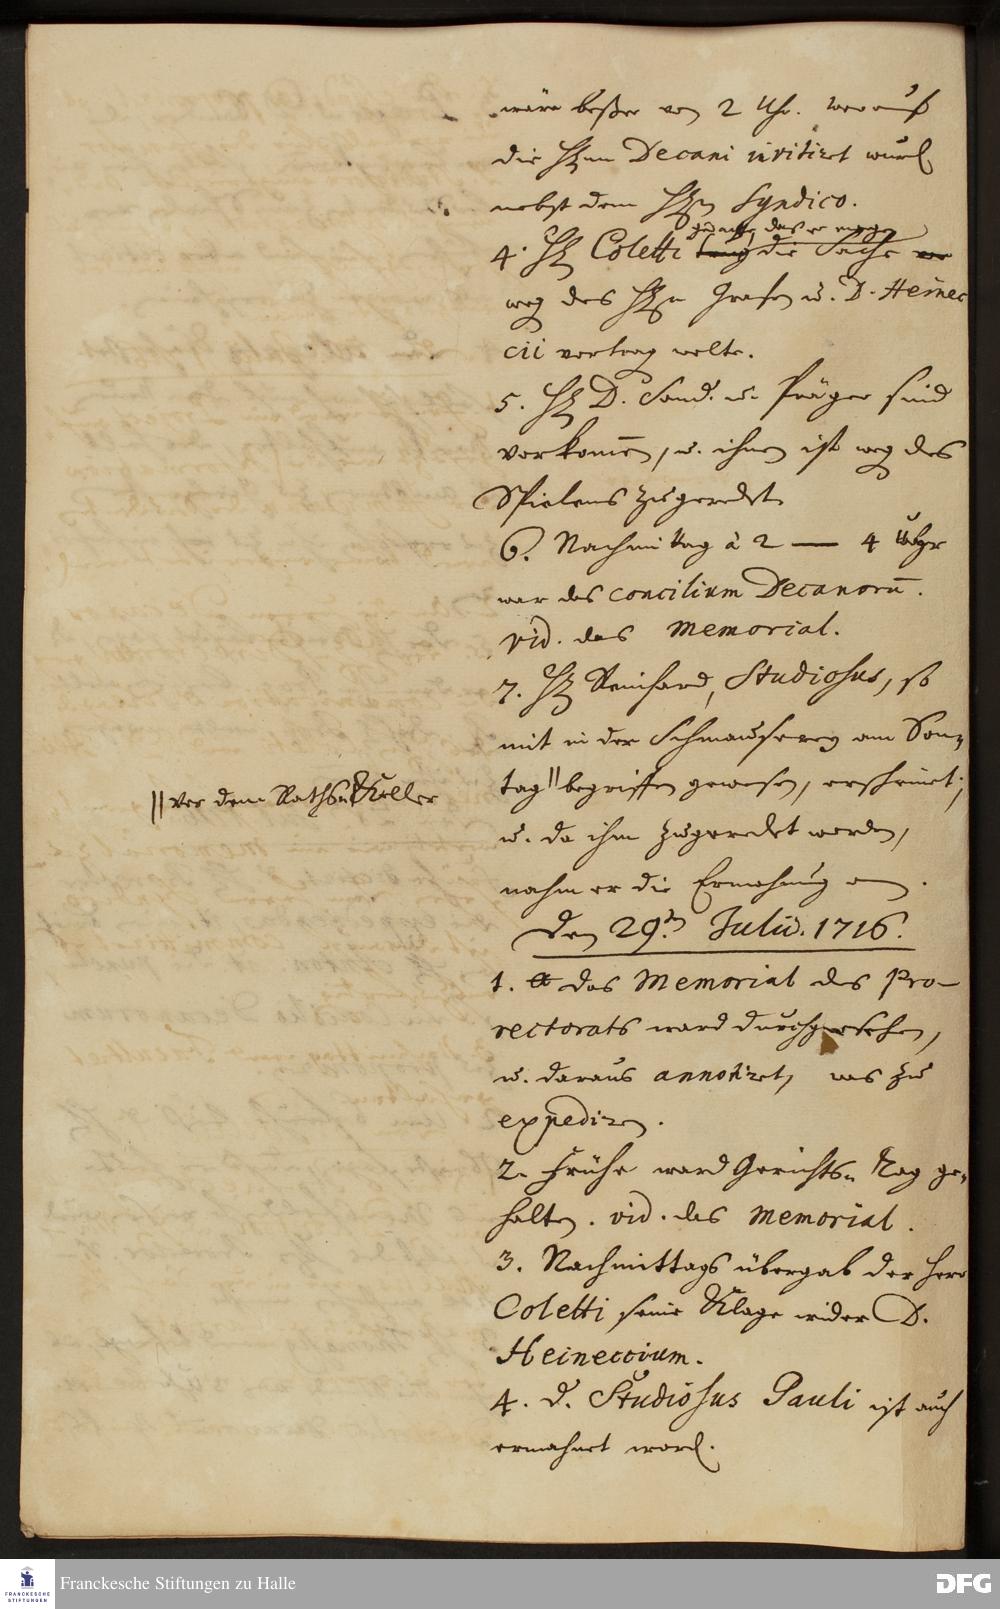 wäre beßer von 2 Uhr. worauf
die HEn Decani invitiret wurd.
nebst dem HEn Syndico.
4. HE Coletti gedachte, das er wegen die Sache
weg des HEn Grafen u. D. Heinec
cii vortrag wolte.
5. HE D. Sand. u. Präger sind
vorkom̄en, u. ihnen ist weg des
Spielens zugeredet.
6. Nachmittag à 2 — 4 Uhr
war das concilium Decanorū.
vid. das Memorial.
7. HE Reinhard, Studiosus, so
mit in der Schmauserey am Son-
tag || begriffen gewesen, erscheinet;
|| vor dem Raths-Keller
u. da ihm zugeredet worden,
nahm er die Ermahnung an.
Den 29.ten Julii. 1716.
1. das Memorial des Pro-
rectorats ward durchgesehen,
u. daraus annotiret, was zu
expediren.
2. Frühe ward Gerichts-Tag ge-
halten. vid. das Memorial.
3. Nachmittags übergab der Herr
Coletti seine Klage wider D.
Heineccium.
4. d. Studiosus Pauli ist auch
ermahnet word.
Franckesche Stiftungen zu Halle
DFG
FRANCKESCHE
STIFTUNGEN